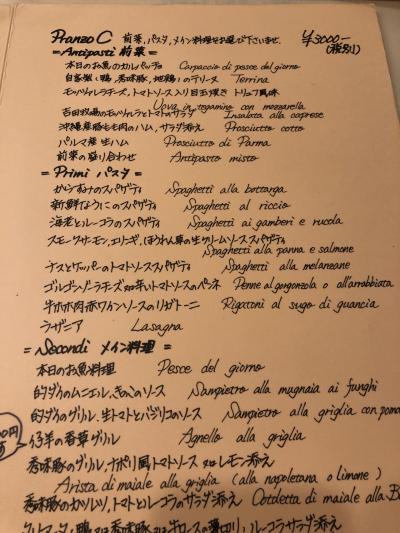 Pranzo C 前菜、パスタ、メイン料理をお選び下さいませ. ¥3000-
(税別)
= Antipasti 前菜 =
本日のお魚のカルパッチョ Carpaccio di pesce del giorno
自家製(鴨、秀味豚、地鶏)のテリーヌ Terrina
モッツァレラチーズ、トマトソース入り目玉焼き トリュフ風味
Uova in tegamino con mozzarella
吉田牧場のモッツァレラとトマトのサラダ Insalata alla caprese
沖縄産豚もも肉のハム、サラダ添え Prosciutto cotto
パルマ産生ハム Prosciutto di Parma
前菜の盛り合わせ Antipasto misto
= Primi パスタ =
からすみのスパゲティ Spaghetti alla bottarga
新鮮なうにのスパゲティ Spaghetti al riccio
海老とルーコラのスパゲティ Spaghetti ai gamberi e rucola
スモークサーモン、エリンギ、ほうれん草の生クリームソーススパゲティ
Spaghetti alla panna e salmone
ナスとケッパーのトマトソーススパゲティ Spaghetti alla melanzane
ゴルゴンゾーラチーズor辛いトマトソースのペンネ Penne al gorgonzola o all'arrabbiata
牛ホホ肉赤ワインソースのリガトーニ Rigatoni al sugo di guancia
ラザニア Lasagna
= Secondi メイン料理 =
本日のお魚料理 Pesce del giorno
的ダイのムニエル、きのこのソース Sampietro alla mugnaia ai funghi
的ダイのグリル、生トマトとバジリコのソース Sampietro alla griglia con pomo
仔羊の香草グリル Agnello alla griglia
秀味豚のグリル、ナポリ風トマトソース 又は レモン添え
Arista di maiale alla griglia (alla napoletana o limone)
秀味豚のカツレツ、トマトとルーコラのサラダ添え Cotoletta di maiale alla B